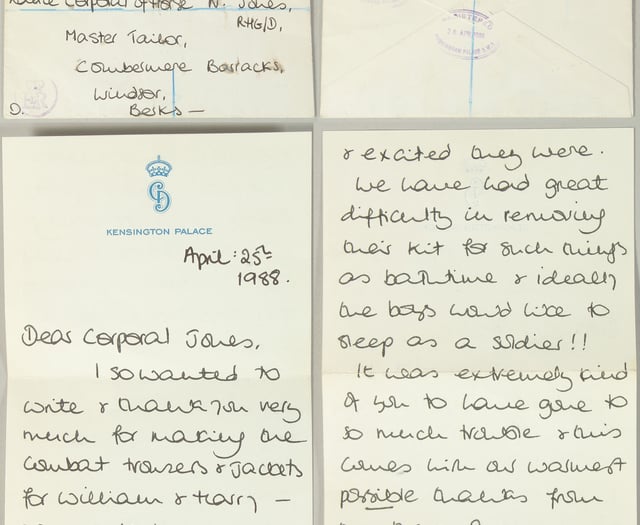 Corporal of Horse N. Jones,
RHG/D,
Master Tailor,
Combermere Barracks,
Windsor,
D. Berks —
KENSINGTON PALACE
April: 25th
1988.
Dear Corporal Jones,
I so wanted to
write & thank you very
much for making the
combat trousers & jackets
for William & Harry —
& excited they were.
We have had great
difficulty in removing
their kit for such things
as bathtime & ideally
the boys would like to
sleep as a soldier!!
It was extremely kind
of you to have gone to
so much trouble & this
comes with our warmest
possible thanks from